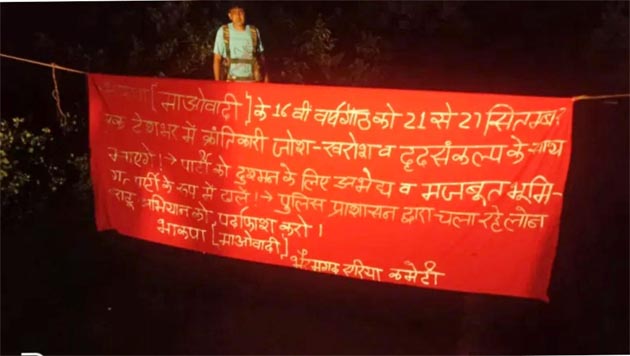 भाकपा [माओवादी] के 16 वी वर्षगाँठ को 21 से 27 सितम्बर
तक देशभर में क्रांतिकारी जोश-खरोश व दृढ़संकल्प के साथ
मनाएंगे! → पार्टी को दुश्मन के लिए अभेद्य व मजबूत भूमि-
गत पार्टी के रूप में ढाले! → पुलिस प्रशासन द्वारा चला रहे लोन
वर्राटू अभियान को पर्दाफाश करो!
भाकपा [माओवादी]
भैरमगढ़ एरिया कमेटी